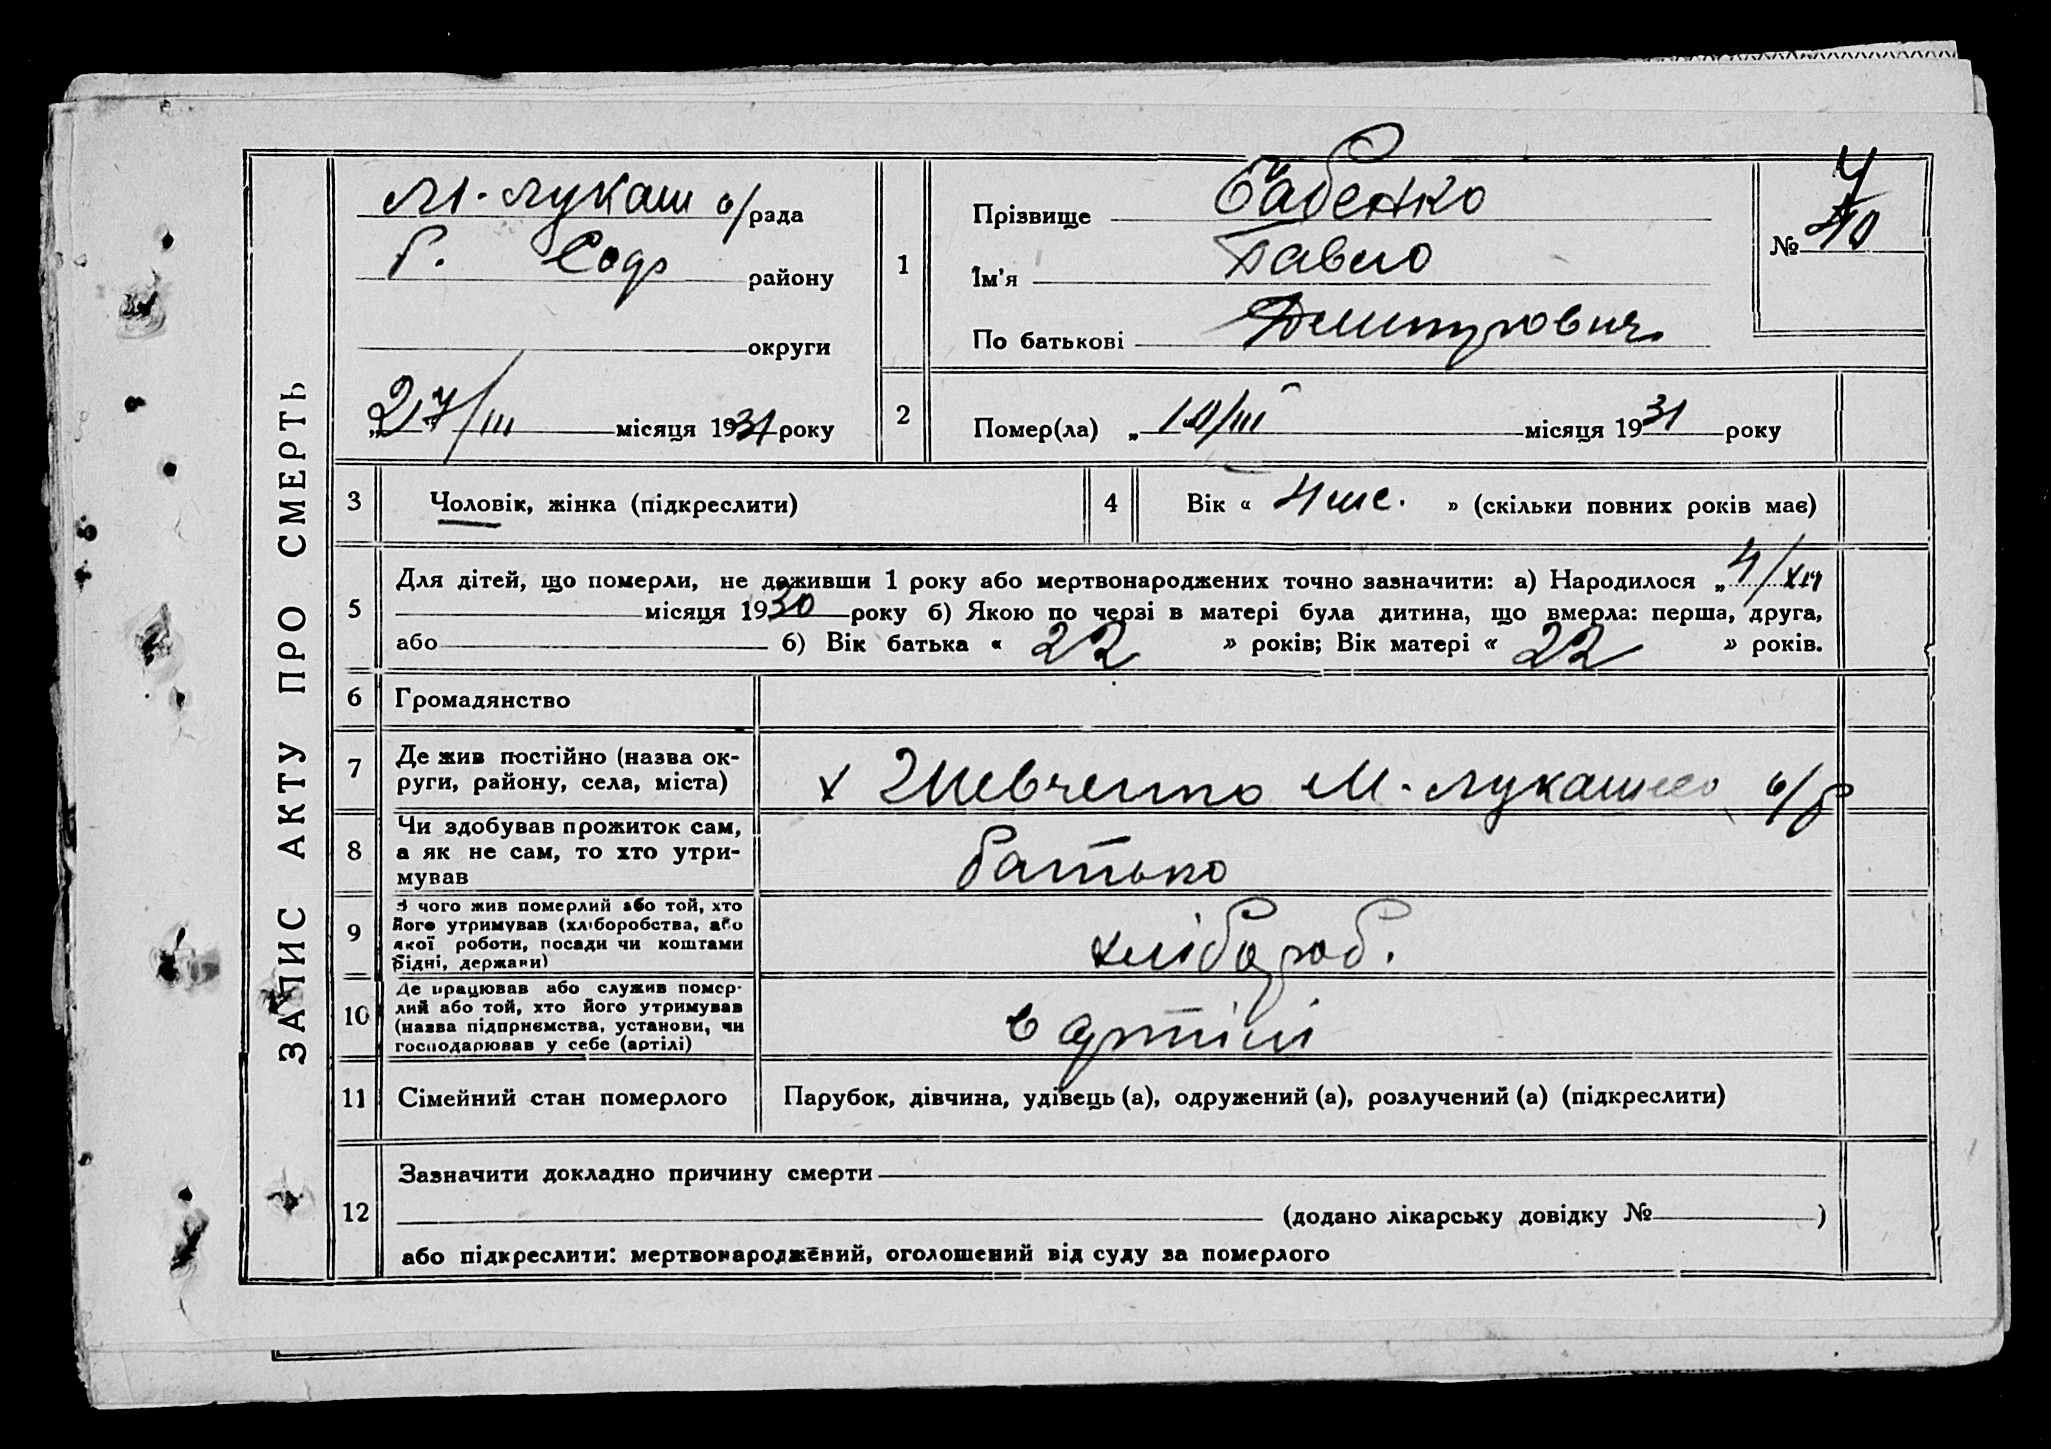 ЗАПИС АКТУ ПРО СМЕРТЬ
М. Лукаш с/рада
В. району
округи
„27/III місяця 1931 року
1
Прізвище Бабенко
Ім'я Павло
По батькові Дмитрович
№ 7
40
2
Помер(ла) „10/III місяця 1931 року
3 Чоловік, жінка (підкреслити)
4 Вік « 4 міс. » (скільки повних років має)
5 Для дітей, що померли, не доживши 1 року або мертвонароджених точно зазначити: а) Народилося „4/XII
місяця 1930 року б) Якою по черзі в матері була дитина, що вмерла: перша, друга,
або б) Вік батька « 22 » років; Вік матері « 22 » років.
6 Громадянство
7 Де жив постійно (назва ок-
руги, району, села, міста)
х Шевченко М. Лукаш с/р
8 Чи здобував прожиток сам,
а як не сам, то хто утри-
мував
батько
9 З чого жив померлий або той, хто
його утримував (хліборобства, або
якої роботи, посади чи коштами
рідні, держави)
хлібороб.
10 Де працював або служив помер-
лий або той, хто його утримував
(назва підприємства, установи, чи
господарював у себе (артілі)
в артілі
11 Сімейний стан померлого
Парубок, дівчина, удівець (а), одружений (а), розлучений (а) (підкреслити)
12 Зазначити докладно причину смерти
(додано лікарську довідку № )
або підкреслити: мертвонароджений, оголошений від суду за померлого